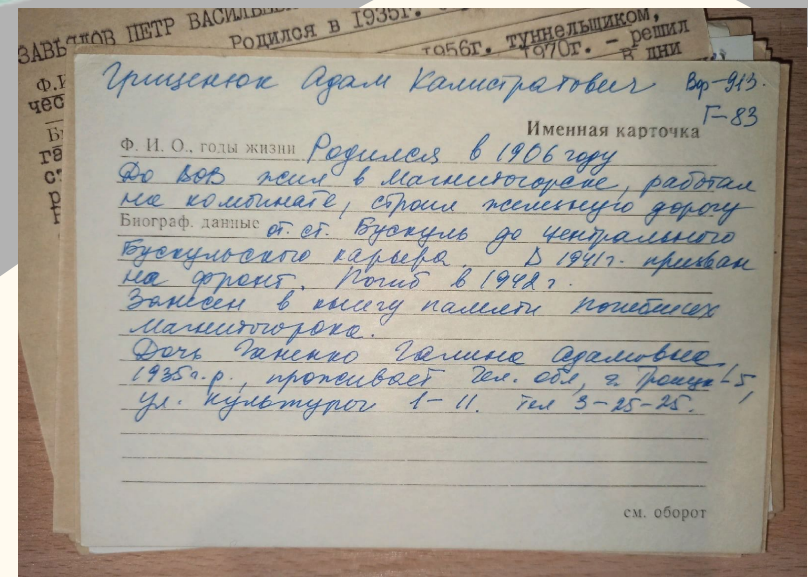 ЗАВЬЯЛОВ ПЕТР ВАСИЛЬЕВ
Родился в 1935г.
1956г. туннельщиком,
1970г. – решил
в дни
Ф.И
чес
Би
га
ст
р
Грищенюк Адам Калистратович Вф-913.
Г-83
Именная карточка
Ф. И. О., годы жизни Родился в 1906 году
До ВОВ жил в Магнитогорске, работал
на комбинате, строил железную дорогу
Биограф. данные от. ст. Бускуль до центрального
Бускульского карьера. В 1941г. призван
на фронт. Погиб в 1942 г.
Занесен в книгу памяти погибших
Магнитогорска.
Дочь Ганенко Галина Адамовна
1935г.р., проживает Чел. обл, г. Троицк-5,
ул. Культуры 1-11. тел 3-25-25.
см. оборот